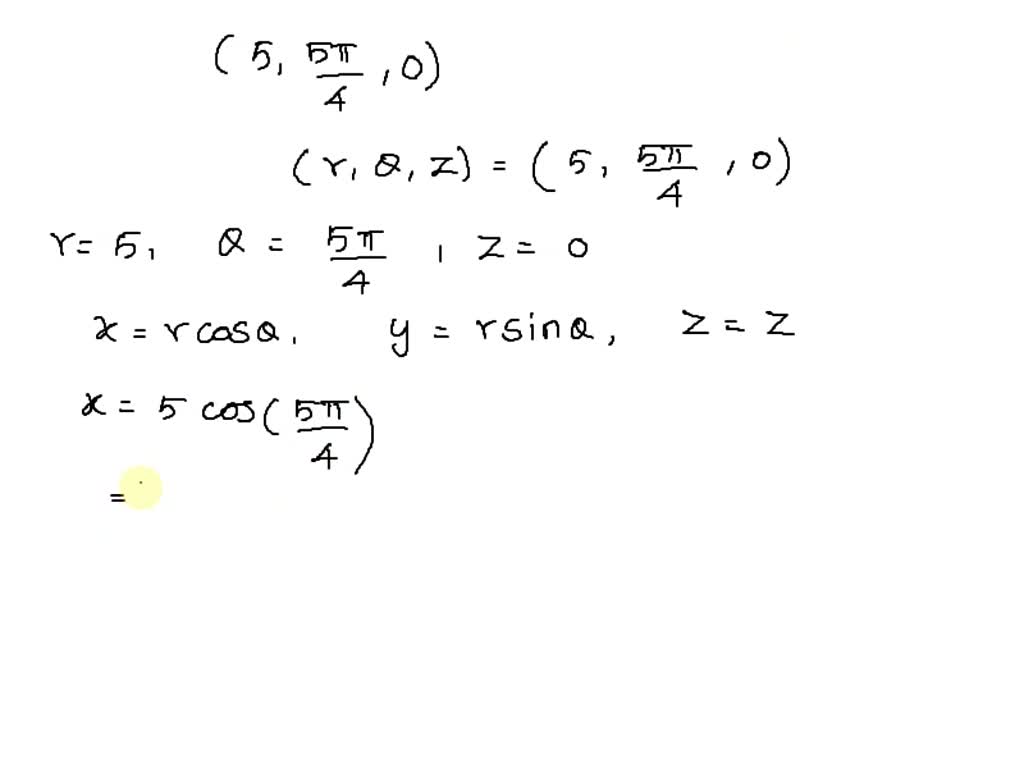 (5, 5π/4, 0)
(r, θ, z) = (5, 5π/4, 0)
r = 5, θ = 5π/4, z = 0
x = r cosθ, y = r sinθ, z = z
x = 5 cos(5π/4)
=